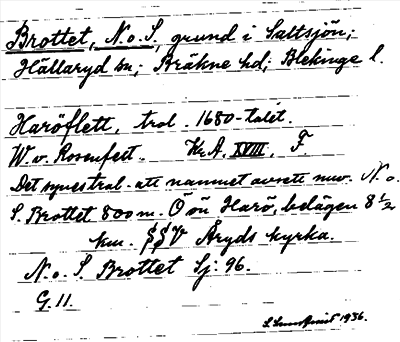 Brottet, N. o. S., grund i Saltsjön;
Hällaryd sn; Bräkne hd; Blekinge l.
Haröflett, trol. 1680-talet.
W. v. Rosenfelt. Kr. A. XVIII. F.
Det synes trol. att namnet avsett nuv. N. o.
S. Brottet 800 m. Ö om Harö, belägen 8 1/2
km. SSV Åryds kyrka.
N. o. S. Brottet Sj. 96.
G. 11.
1936.